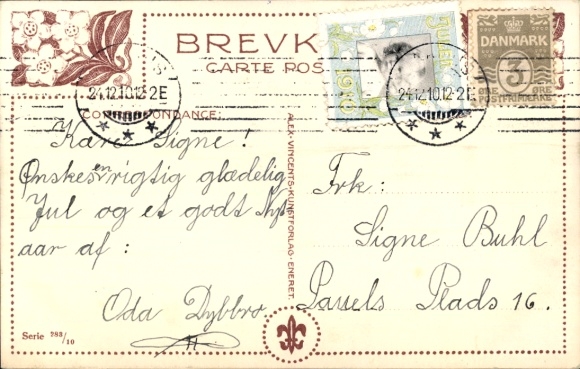 BREVK
CARTE POS
JULEN
1910
DANMARK
3
ØRE ØRE
POSTFRIM.ÆRKE
24.12.10.12-2E
24.12.10.12-2E
CORRESPONDANCE:
Kære Signe!
Ønskes en rigtig glædelig
Jul og et godt Nyt-
aar af:
Oda Dybbro
Serie 783/10
ALEX VINCENTS KUNSTFORLAG ENERET.
Frk:
Signe Buhl
Pauels Plads 16.